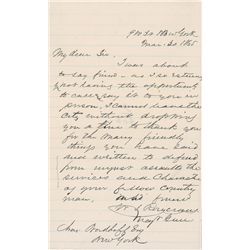 New York
Mar 20 1865
My dear Sir,
I was about
to say friend - as I so
not having the opportunity
to call & say it to you in
person, I cannot leave the
City without dropping
you a line to thank you
for the many friendly
things you have said
and written to defend
from unjust assaults the
services and Character
as your fellow country
man, and friend
W S Rosecrans
Maj Genl
Chas Nordhoff Esq
New York